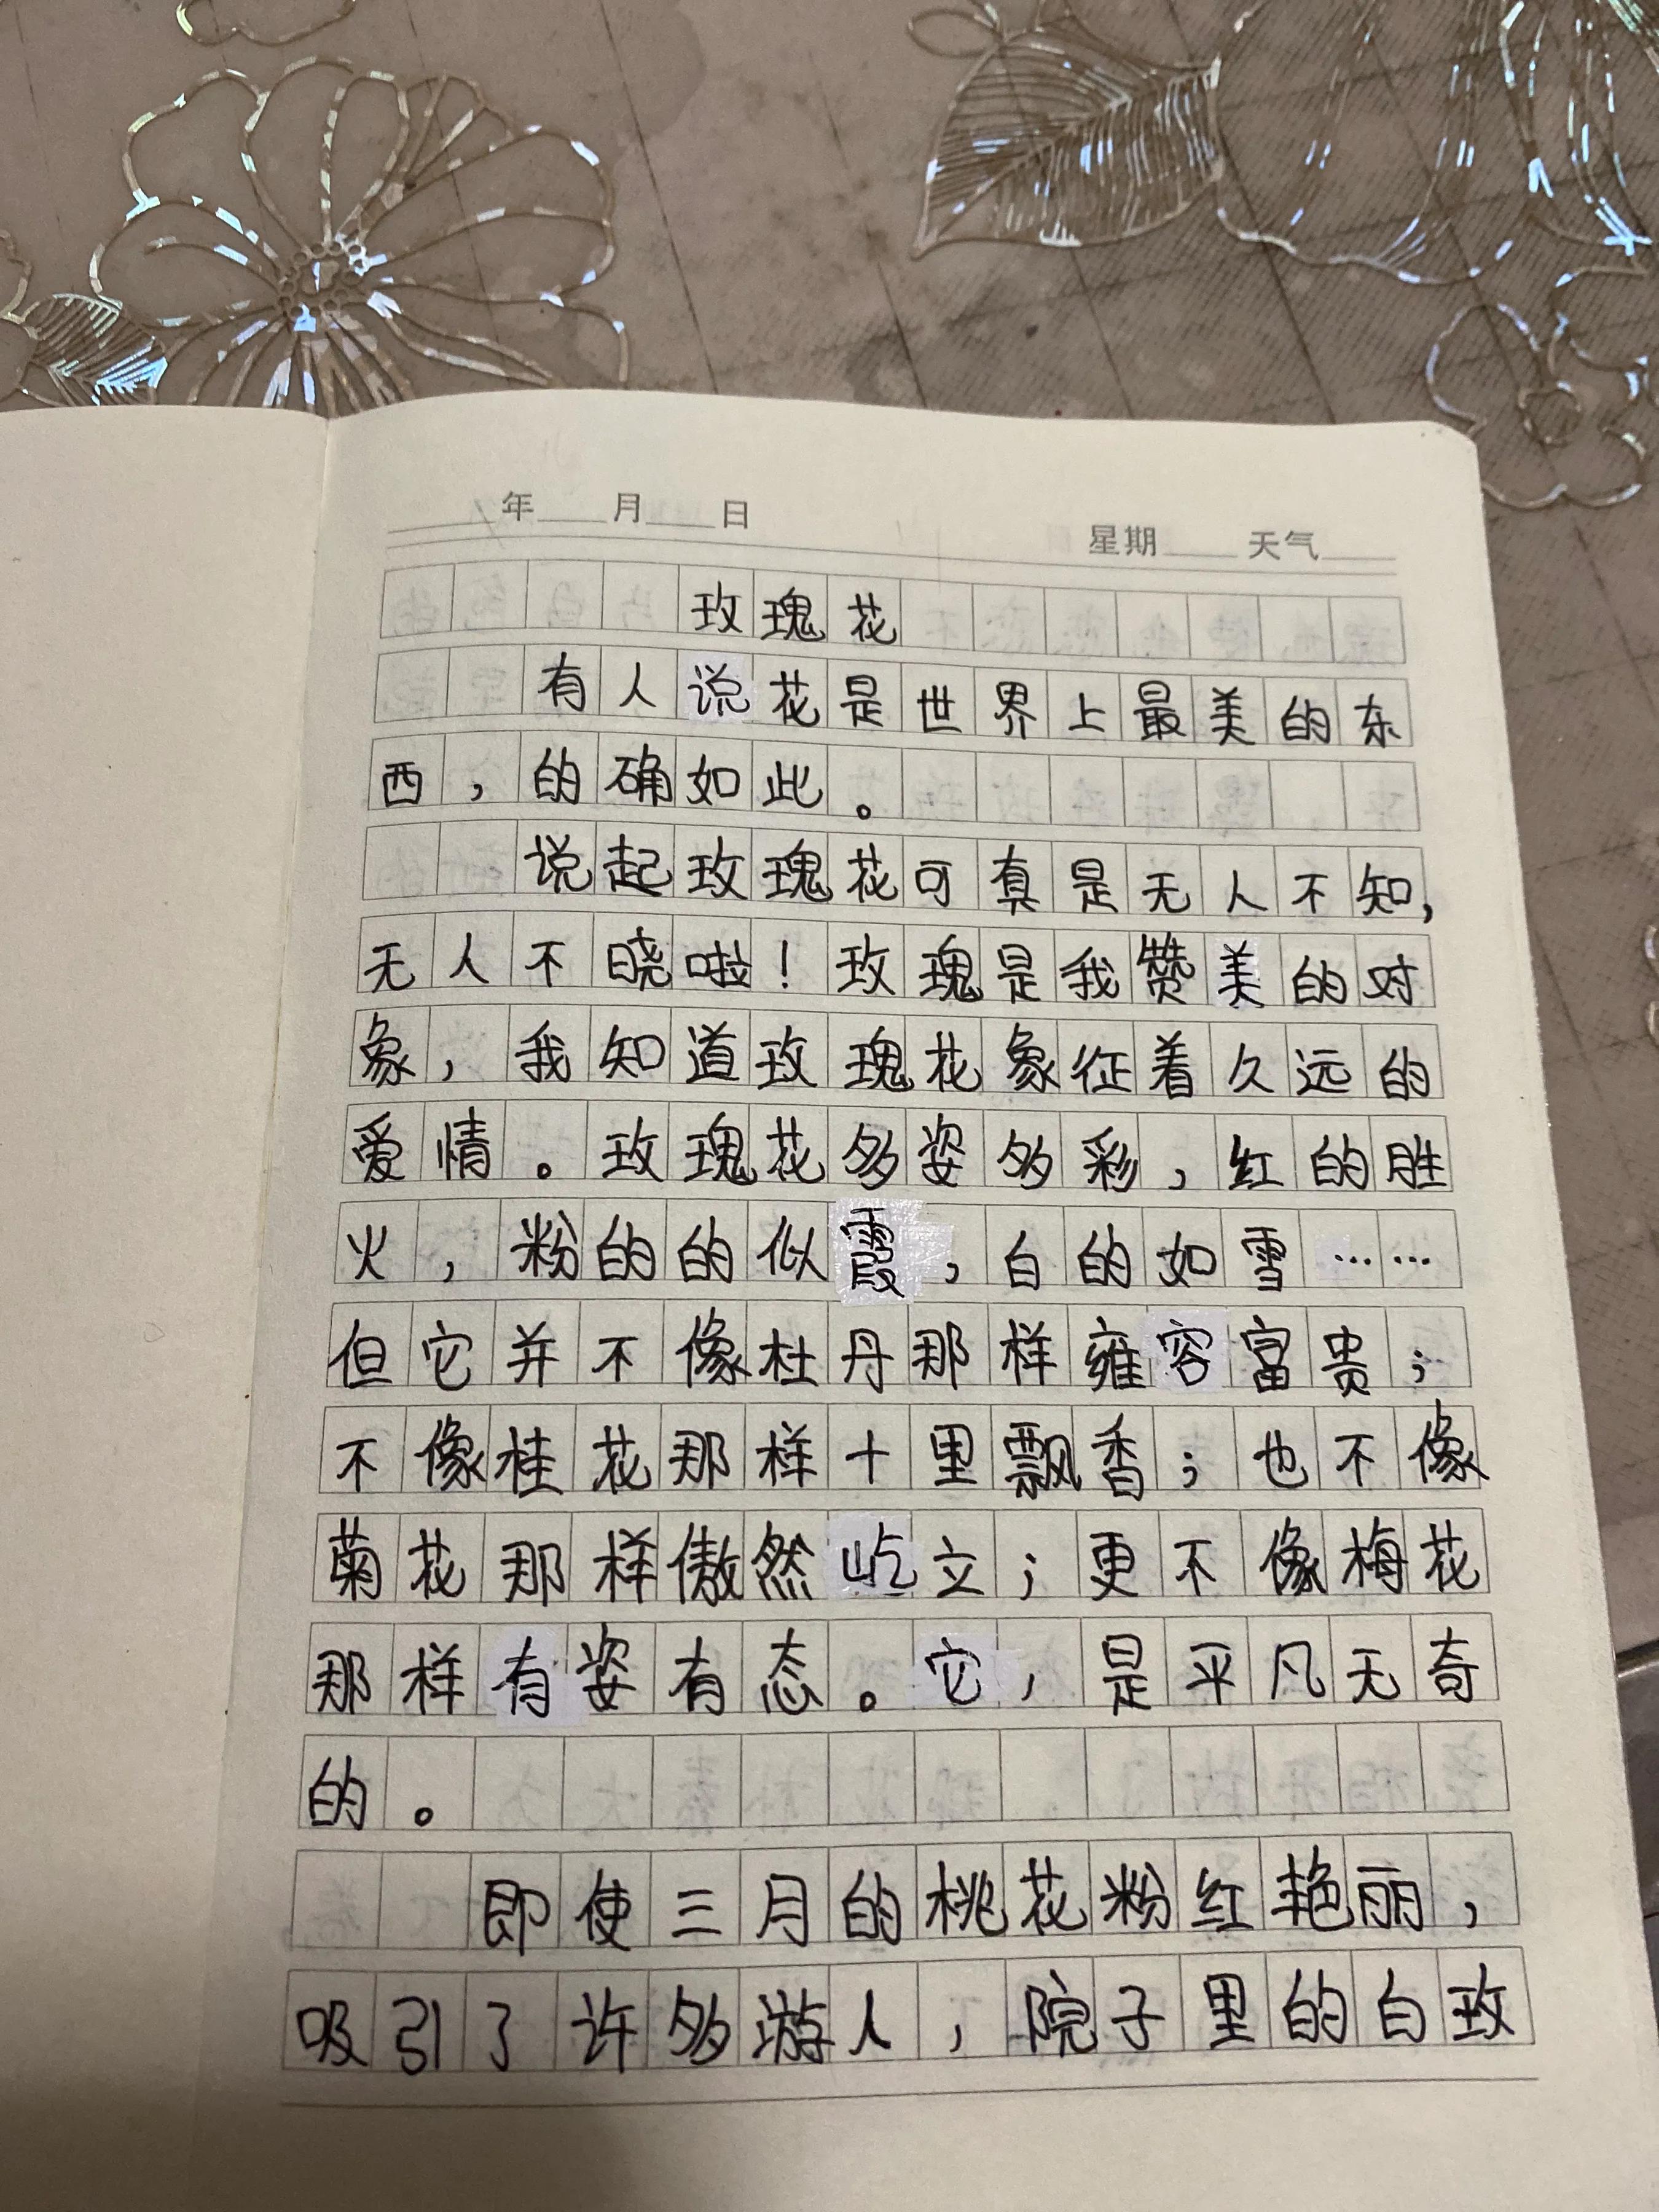 年 月 日 星期 天气
玫瑰花
有人说花是世界上最美的东
西，的确如此。
说起玫瑰花可真是无人不知，
无人不晓啦！玫瑰是我赞美的对
象，我知道玫瑰花象征着久远的
爱情。玫瑰花多姿多彩，红的胜
火，粉的的似霞，白的如雪……
但它并不像杜丹那样雍容富贵；
不像桂花那样十里飘香；也不像
菊花那样傲然屹立；更不像梅花
那样有姿有态。它，是平凡无奇
的。
即使三月的桃花粉红艳丽，
吸引了许多游人，院子里的白玫